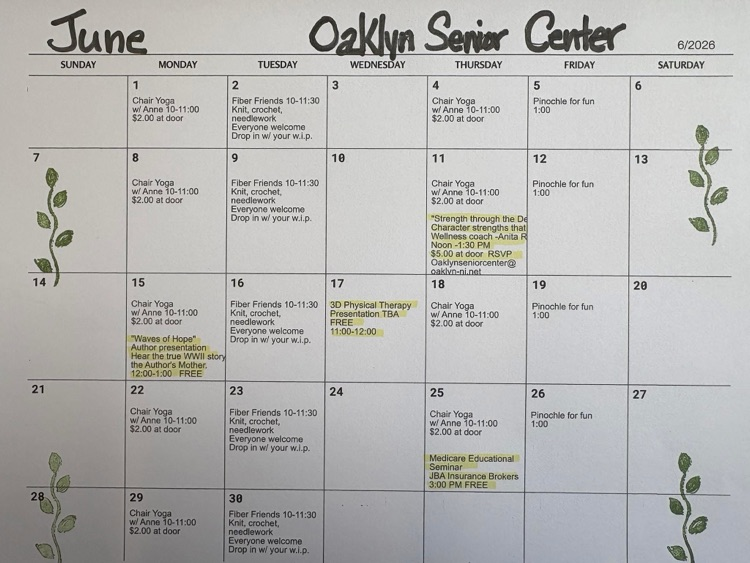 June
Oaklyn Senior Center
6/2026
SUNDAY MONDAY TUESDAY WEDNESDAY THURSDAY FRIDAY SATURDAY
1
Chair Yoga
w/ Anne 10-11:00
$2.00 at door
2
Fiber Friends 10-11:30
Knit, crochet,
needlework
Everyone welcome
Drop in w/ your w.i.p.
3
4
Chair Yoga
w/ Anne 10-11:00
$2.00 at door
5
Pinochle for fun
1:00
6
7
8
Chair Yoga
w/ Anne 10-11:00
$2.00 at door
9
Fiber Friends 10-11:30
Knit, crochet,
needlework
Everyone welcome
Drop in w/ your w.i.p.
10
11
Chair Yoga
w/ Anne 10-11:00
$2.00 at door
"Strength through the De
Character strengths that
Wellness coach -Anita R
Noon -1:30 PM
$5.00 at door RSVP
Oaklynseniorcenter@
oaklyn-nj.net
12
Pinochle for fun
1:00
13
14
15
Chair Yoga
w/ Anne 10-11:00
$2.00 at door
"Waves of Hope"
Author presentation
Hear the true WWII story
the Author's Mother.
12:00-1:00 FREE
16
Fiber Friends 10-11:30
Knit, crochet,
needlework
Everyone welcome
Drop in w/ your w.i.p.
17
3D Physical Therapy
Presentation TBA
FREE
11:00-12:00
18
Chair Yoga
w/ Anne 10-11:00
$2.00 at door
19
Pinochle for fun
1:00
20
21
22
Chair Yoga
w/ Anne 10-11:00
$2.00 at door
23
Fiber Friends 10-11:30
Knit, crochet,
needlework
Everyone welcome
Drop in w/ your w.i.p.
24
25
Chair Yoga
w/ Anne 10-11:00
$2.00 at door
Medicare Educational
Seminar
JBA Insurance Brokers
3:00 PM FREE
26
Pinochle for fun
1:00
27
28
29
Chair Yoga
w/ Anne 10-11:00
$2.00 at door
30
Fiber Friends 10-11:30
Knit, crochet,
needlework
Everyone welcome
Drop in w/ your w.i.p.